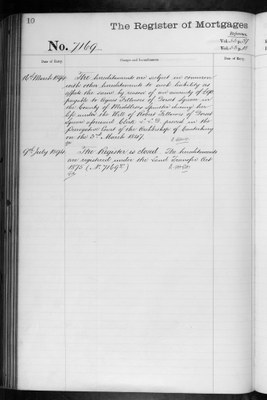 10
The Register of Mortgages
No. 7169.
Date of Entry
Charges and Incumbrances
Date of Entry
16th March 1894.
The hereditaments are subject in common
with other hereditaments to such liability as
affects the same by reason of an annuity of
payable to Agnes Fellowes of Dorset Square in
the County of Middlesex spinster during her
life under the Will of Robert Fellowes of Dorset
Square aforesaid Clerk proved in the
Prerogative Court of the Archbishop of Canterbury
on the 5th March 1847.
9th July 1894.
The Register is closed. The hereditaments
are registered under the Land Transfer Act
1875 (No. 7169